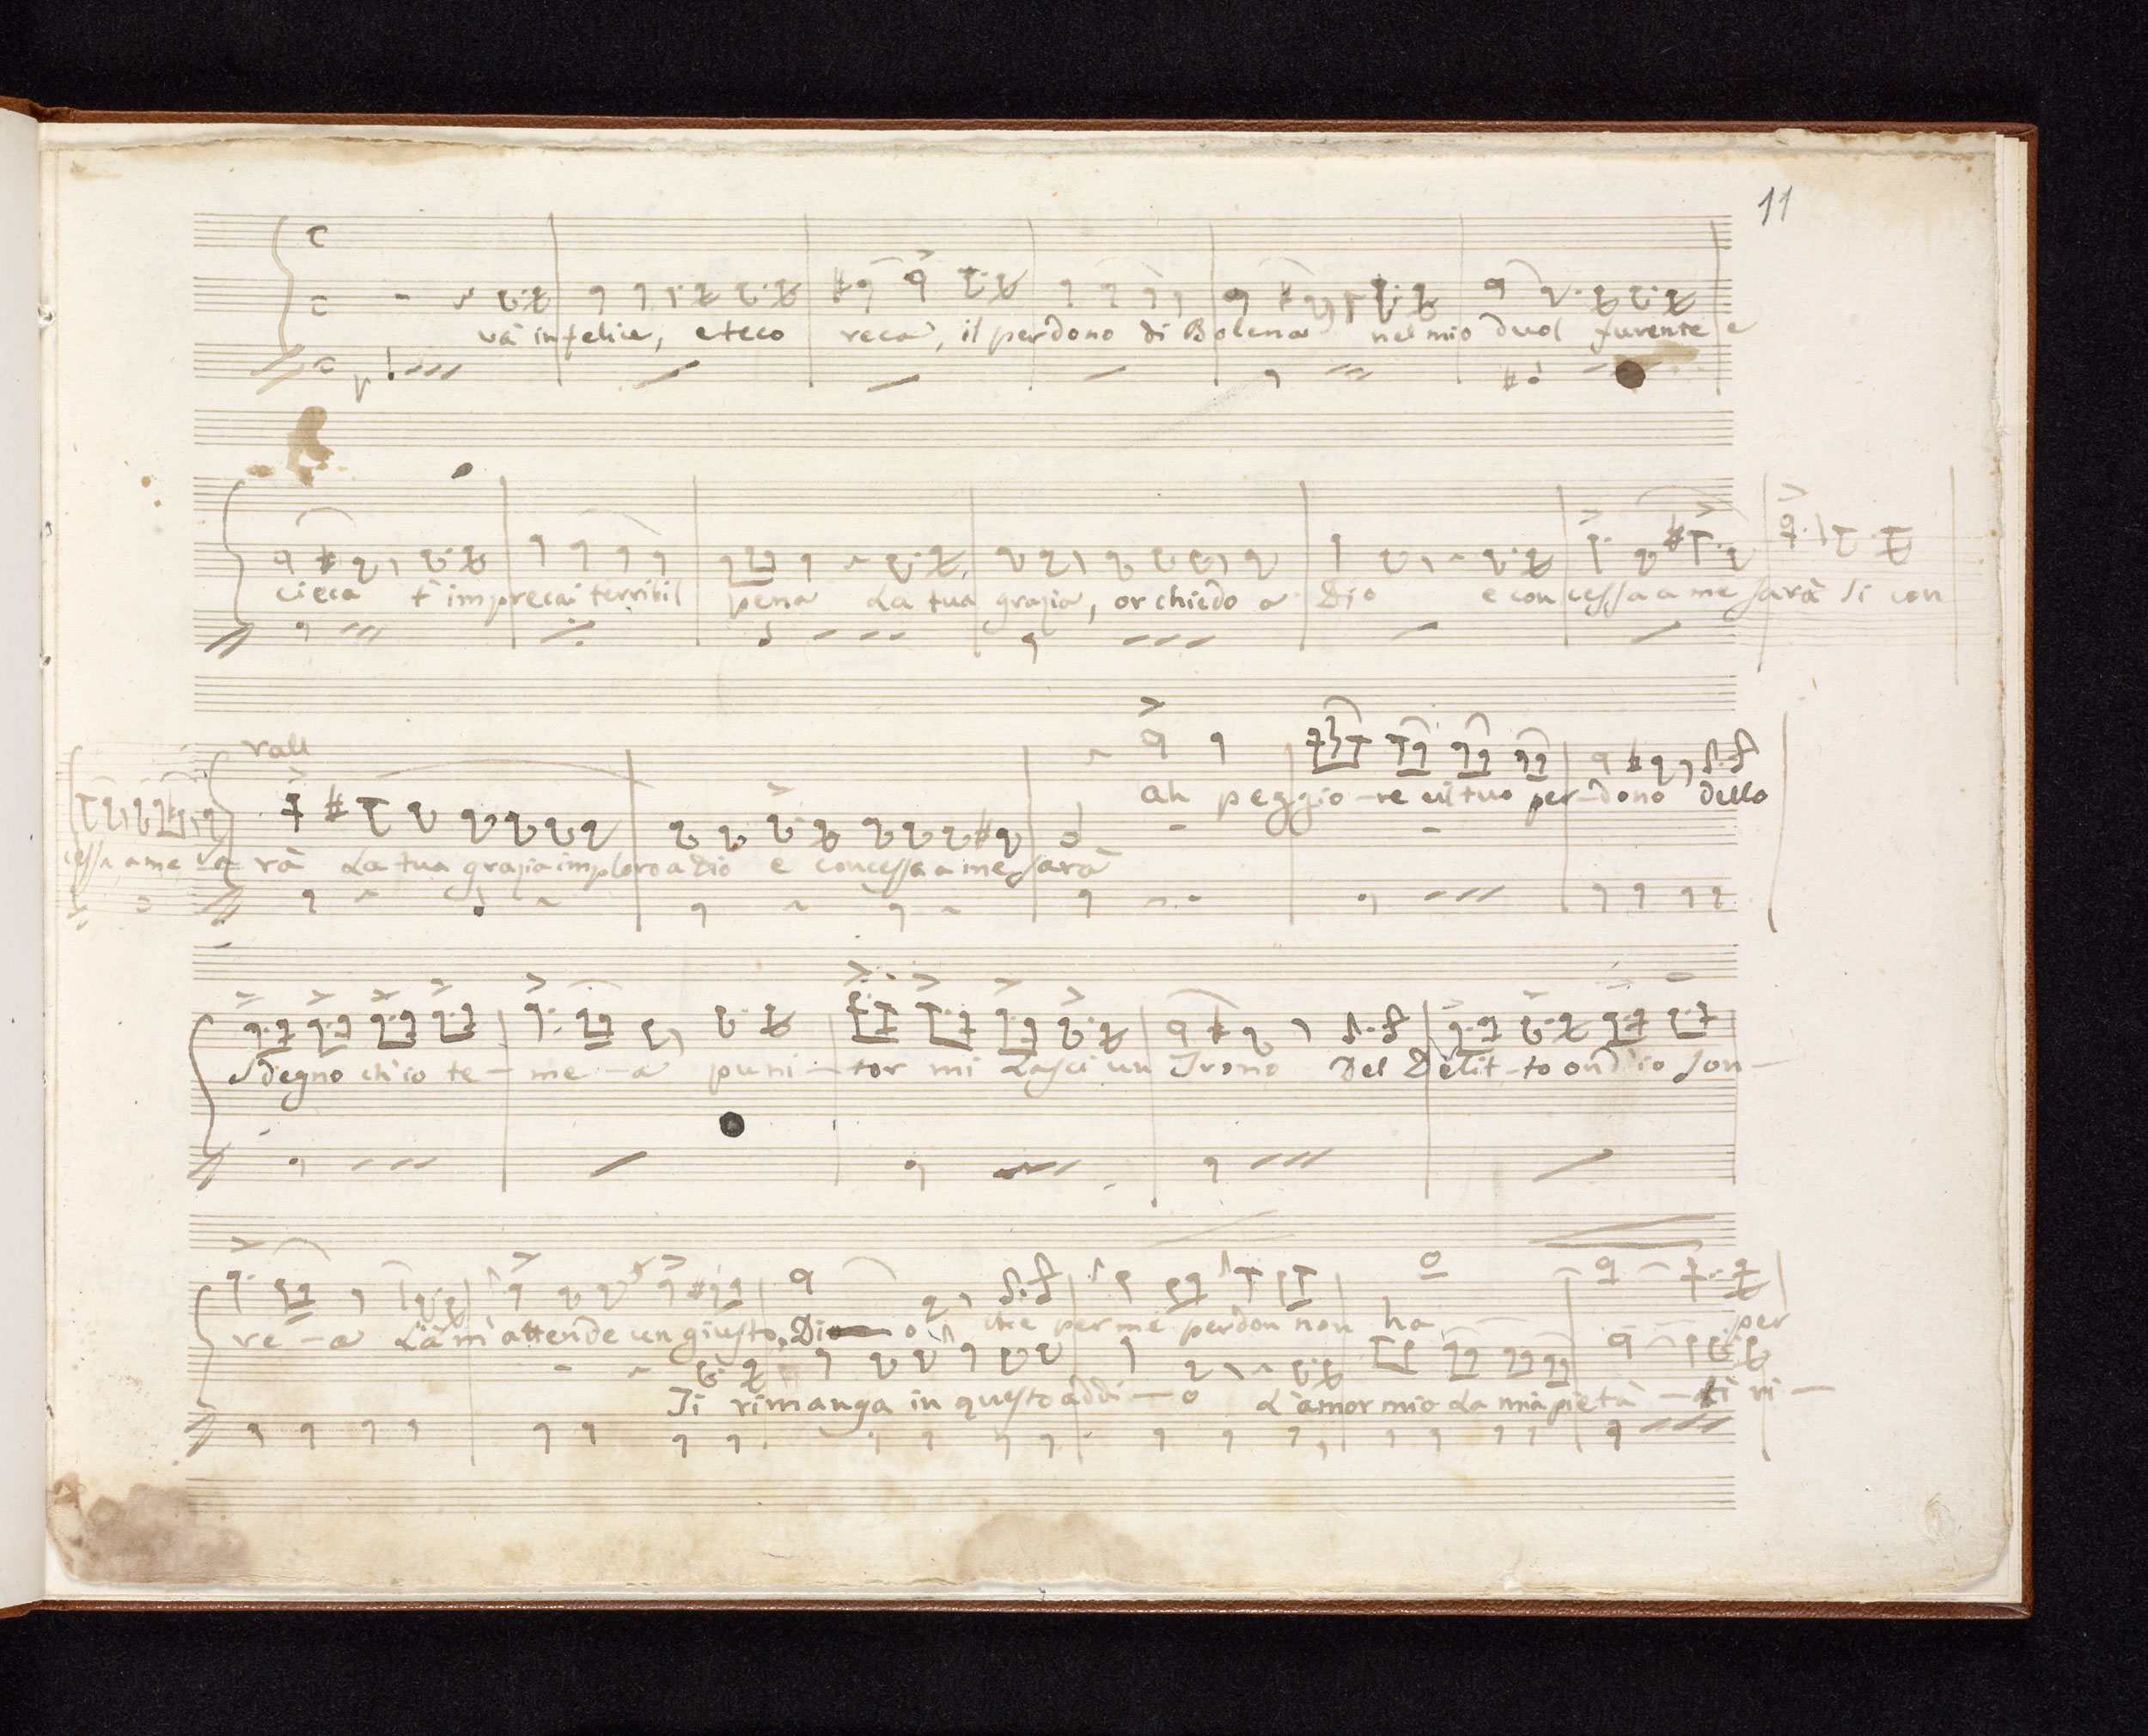 11
và infelice, e teco reca, il perdono di Bolena nel mio duol furente e
cieca t'imprecai terribil pena La tua grazia, or chiedo a Dio e concessa a me sarà si con
rall
ah peggio-re è il tuo per-dono dello
cessa, a me sa rà La tua grazia imploro a dio e concessa a me sarà
sdegno ch'io te-me-a puni-tor mi Lasci un Trono Del Delit-to ond'io son-
re-a Là m'attende un giusto, Dio che per me perdon non ha per
Ti rimanga in questo addi-o L'amor mio La mia pietà - ti ri-